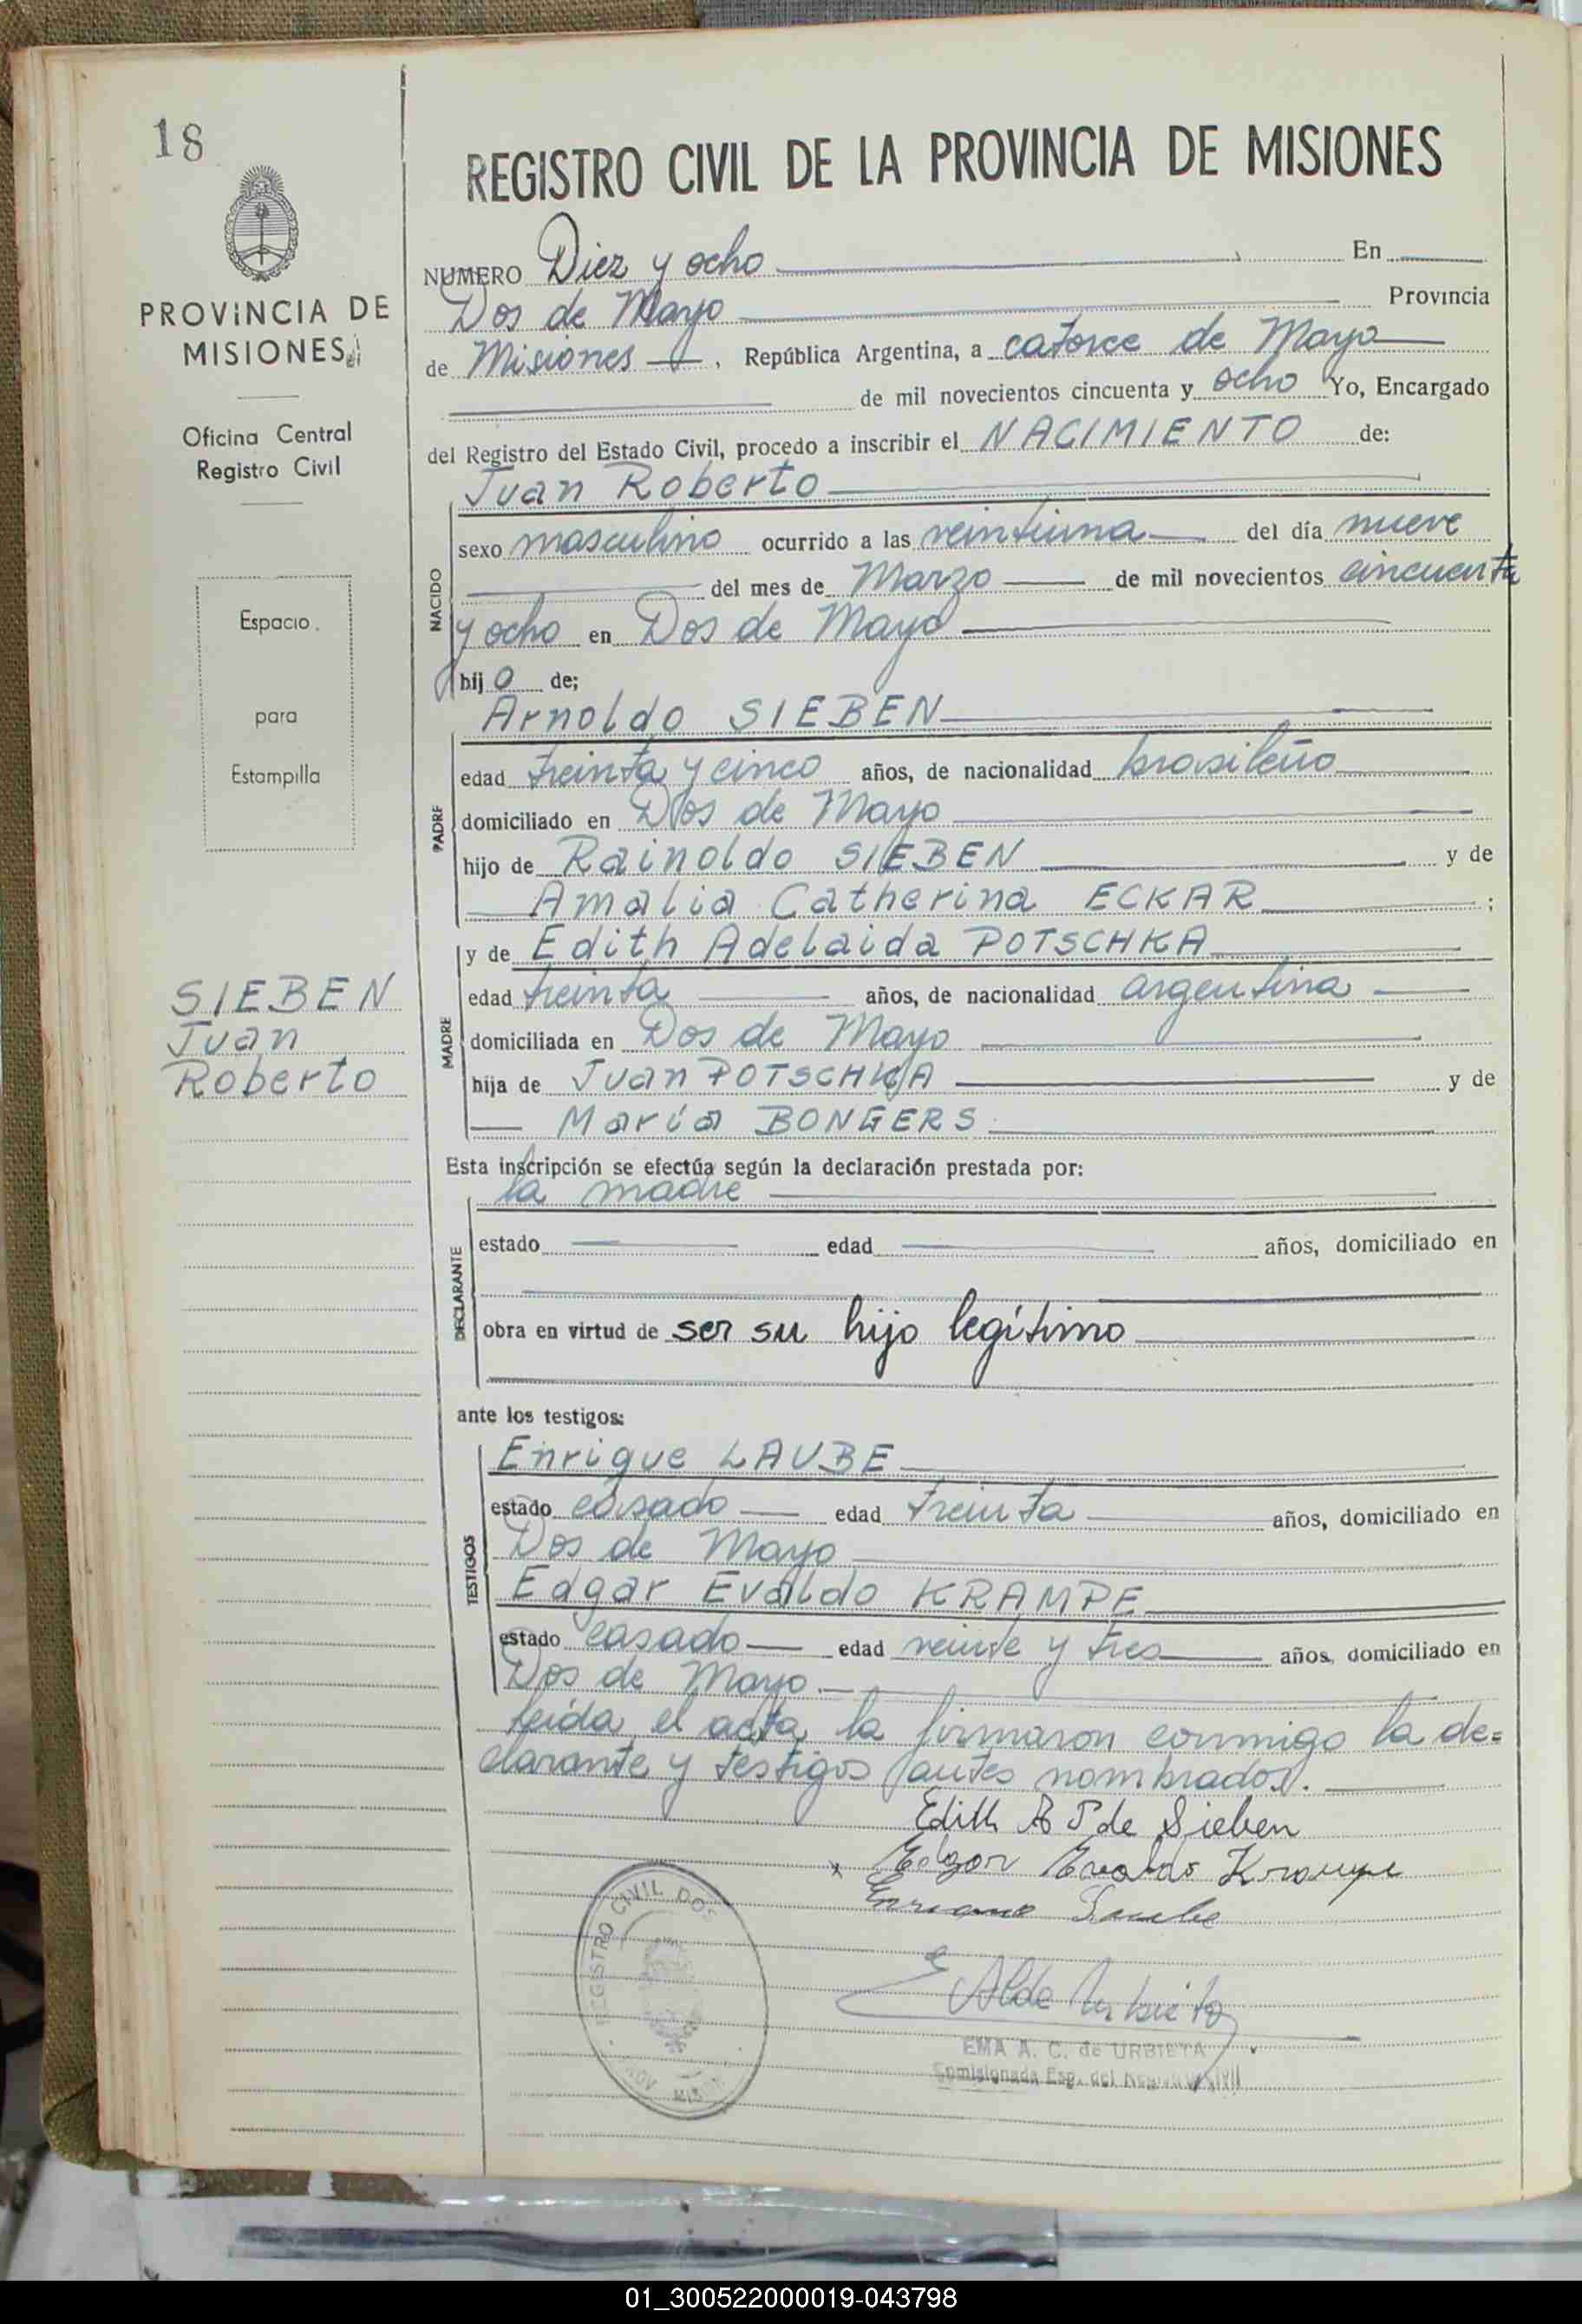 18
PROVINCIA DE
MISIONES
Oficina Central
Registro Civil
Espacio
para
Estampilla
SIEBEN
Juan
Roberto
REGISTRO CIVIL DE LA PROVINCIA DE MISIONES
NUMERO Diez y ocho En
Dos de Mayo Provincia
de Misiones, República Argentina, a catorce de Mayo
de mil novecientos cincuenta y ocho Yo, Encargado
del Registro del Estado Civil, procedo a inscribir el NACIMIENTO de:
Juan Roberto
NACIDO
sexo masculino ocurrido a las veintiuna del día nueve
del mes de Marzo de mil novecientos cincuenta
y ocho en Dos de Mayo
hijo de;
Arnoldo SIEBEN
PADRE
edad treinta y cinco años, de nacionalidad brasileño
domiciliado en Dos de Mayo
hijo de Rainoldo SIEBEN y de
Amalia Catherina ECKAR;
y de Edith Adelaida POTSCHKA
MADRE
edad treinta años, de nacionalidad argentina
domiciliada en Dos de Mayo
hija de Juan POTSCHKA y de
María BONGERS
Esta inscripción se efectúa según la declaración prestada por:
la madre
DECLARANTE
estado edad años, domiciliado en
obra en virtud de ser su hijo legítimo
ante los testigos:
Enrique LAUBE
TESTIGOS
estado casado edad treinta años, domiciliado en
Dos de Mayo
Edgar Evaldo KRAMPE
estado casado edad veinte y tres años, domiciliado en
Dos de Mayo.
leída el acta la firmaron conmigo la de=
clarante y testigos antes nombrados.
Edith A P de Sieben
x Edgar Evaldo Krampe
Enrique Laube
REGISTRO CIVIL DOS
EMA A. C. de URBIETA
Comisionada Esp. del Registro Civil
01_300522000019-043798